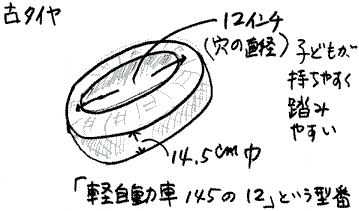 古タイヤ
12インチ
(穴の直径)
子どもが
持ちやすく
踏み
やすい
14.5cm巾
「軽自動車 145の12」という型番